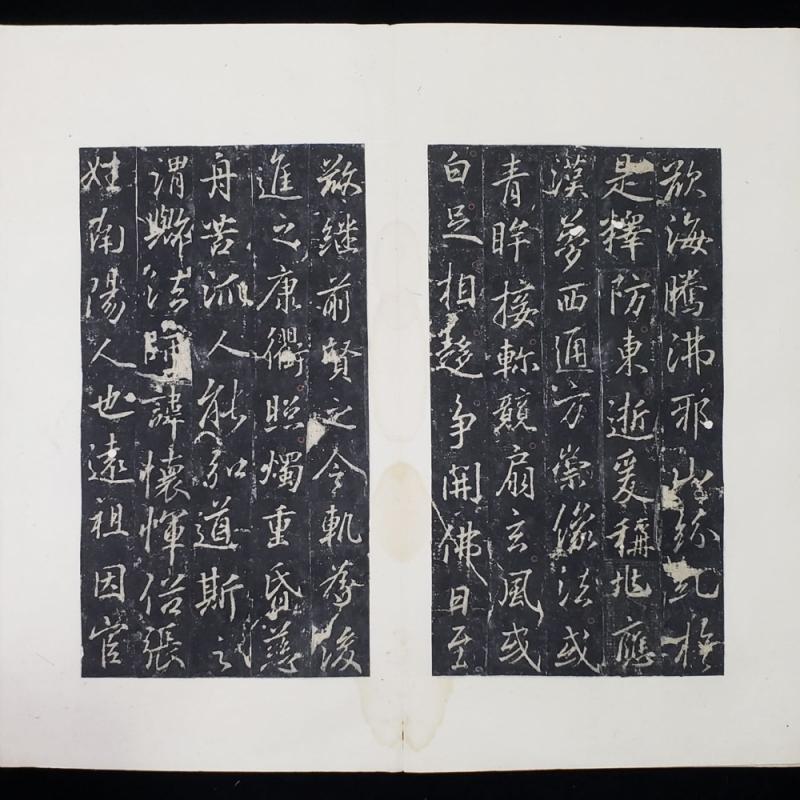 欲海騰沸邪山紛糺於
是釋防東逝爰稱兆應
漢夢西通方崇像法或
青眸接軫競扇玄風或
白足相趍爭開佛日至
敬繼前賢之令軌為後
進之康衢照燭重昏慈
舟苦派人能弘道斯之
謂歟法師諱懷惲俗張
姓南陽人也遠祖因官